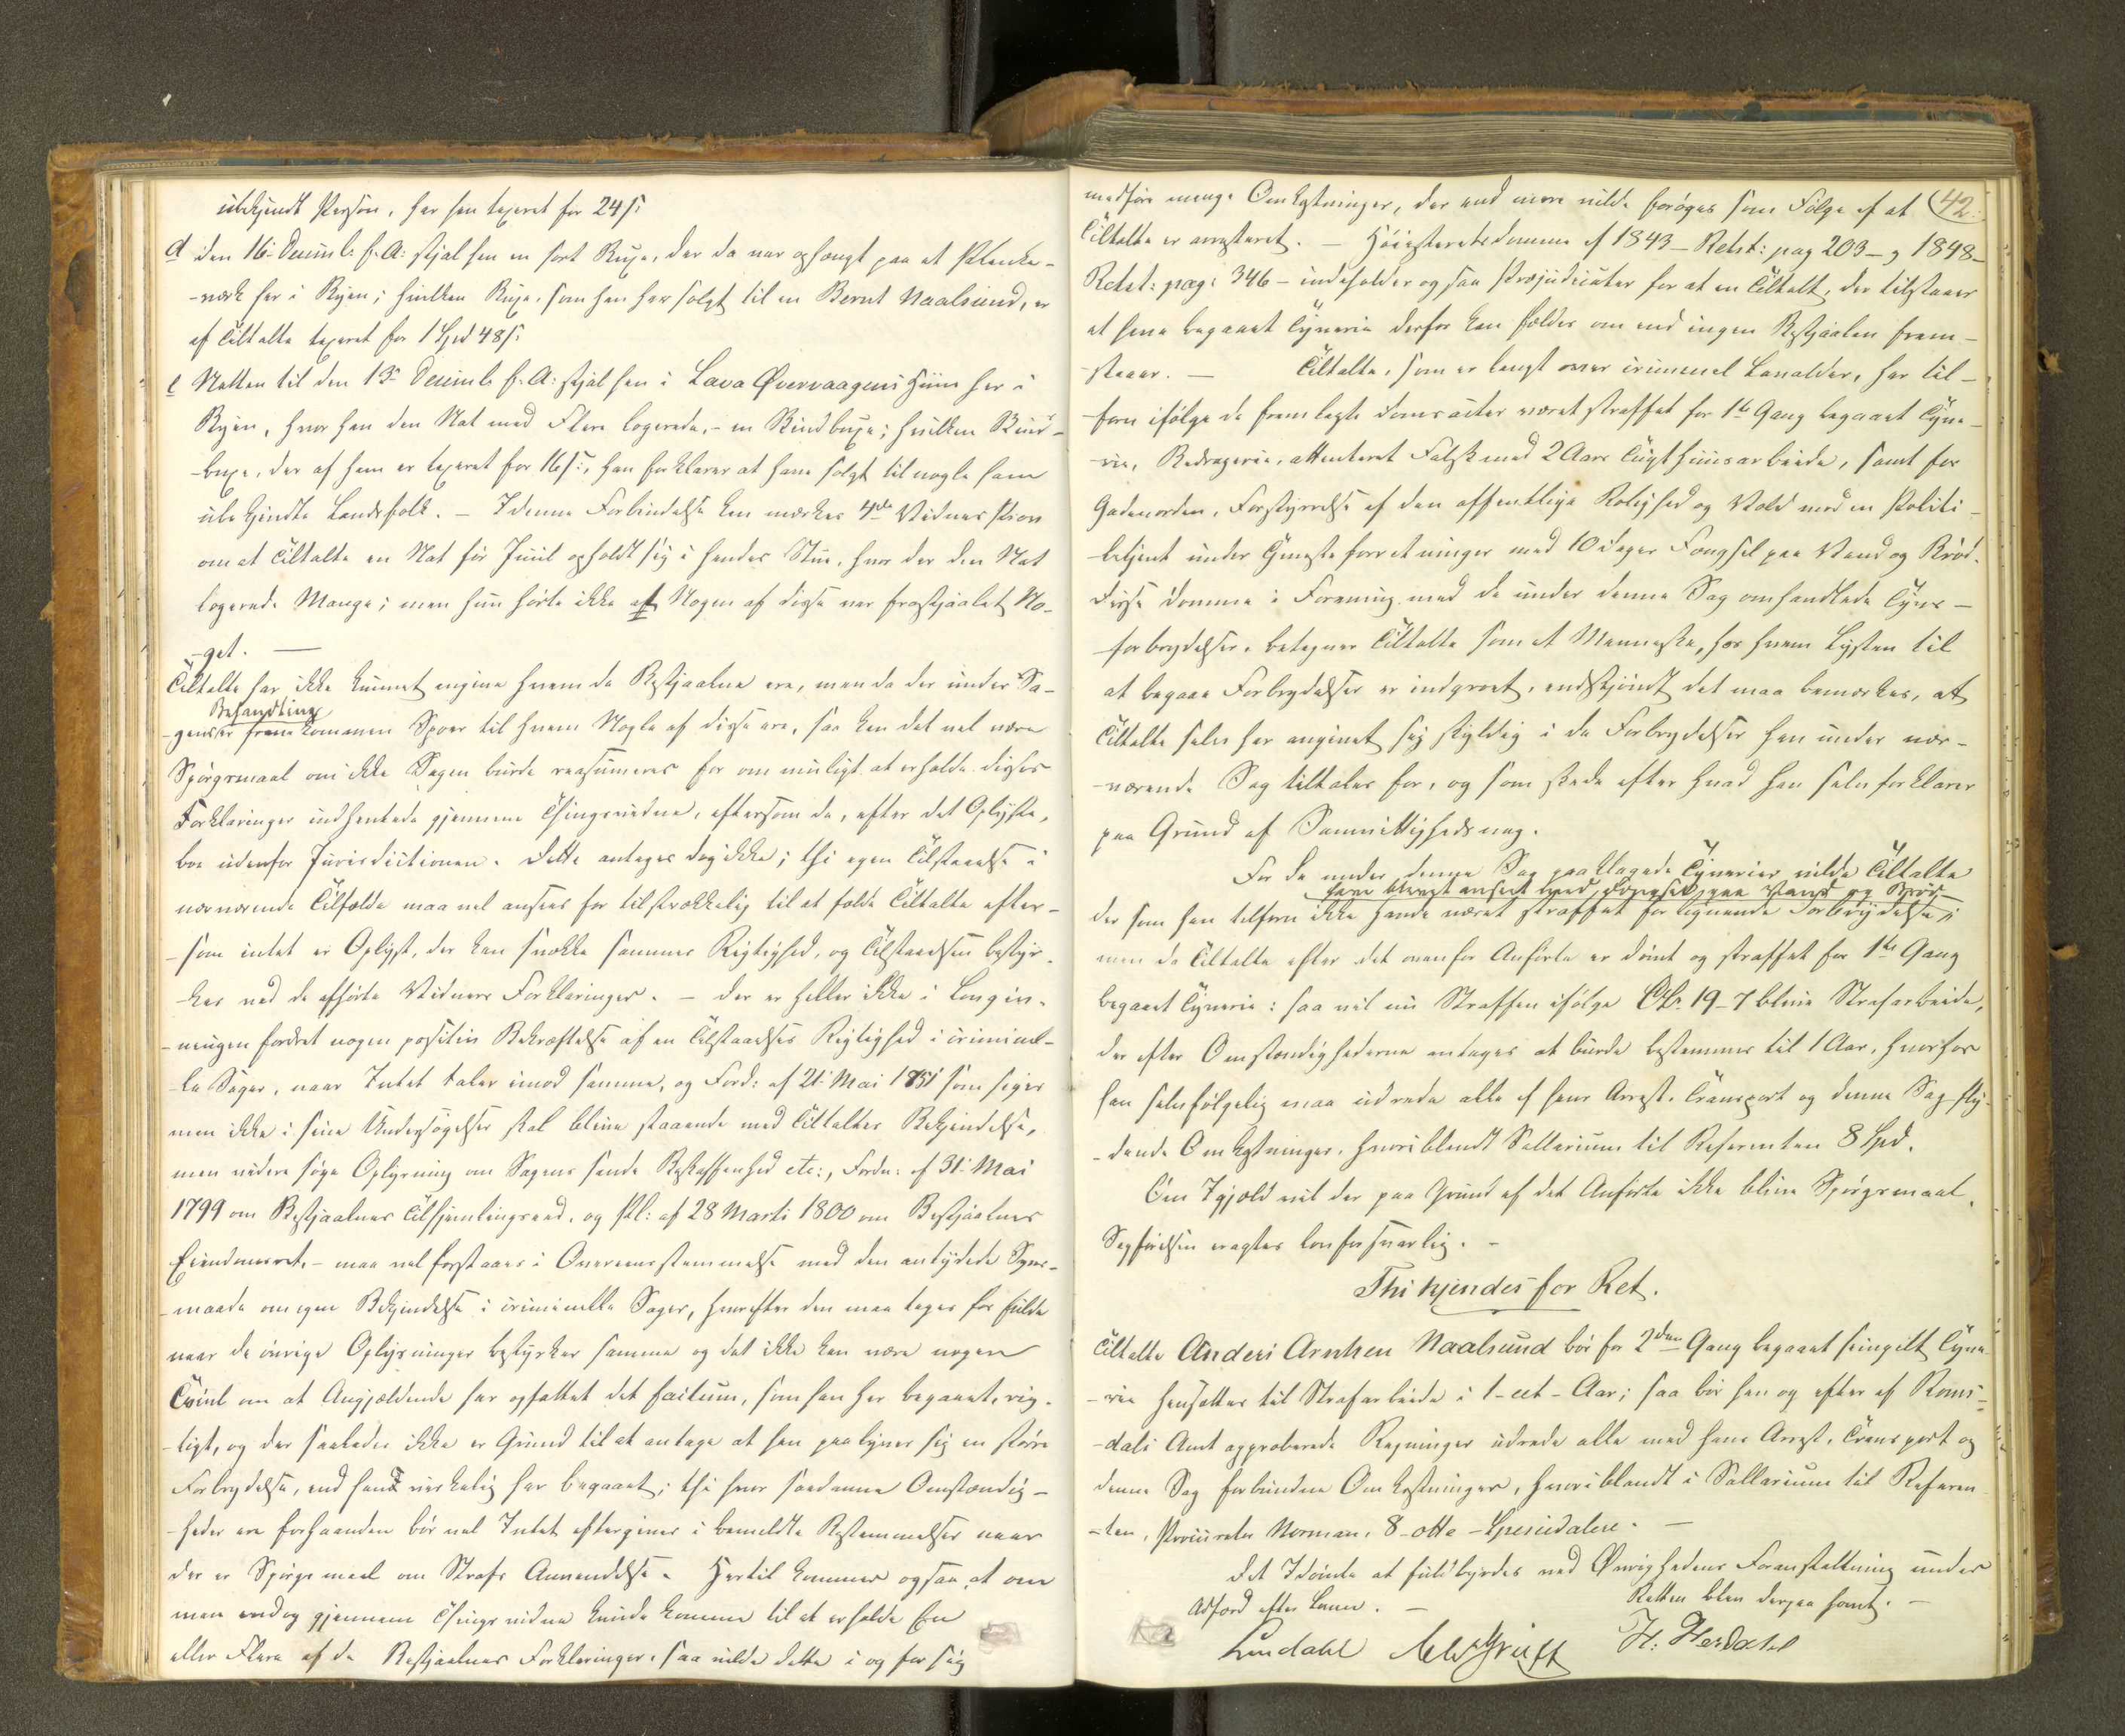 ubekjendt Person, har han taxeret for 24 s:
d den 16de Decemb: f. A: stjal han en sort Buxe, der da var ophængt paa et Planke-
-værk her i Byen; hvilken Buxe, som han har solgt til en Bernt Naalsund, er
af Tiltalte taxeret for 1 Spd 48 s:
e Natten til den 13de Decemb f. A: stjal han i Lava Øvervaagens Huus her i
Byen, hvor han den Nat med Flere logerede, - en Skindbuxe; hvilken Skind-
-buxe, der af ham er taxeret for 16 s:, han forklarer at have solgt til nogle ham
ubekjendte Landsfolk. - I denne Forbindelse kan mærkes 4de Vidnes Prov
om at Tiltalte en Nat før Juul opholdt sig i hendes Stue, hvor der den Nat
logerede Mange; men hun hørte ikke at Nogen af disse var frastjaalet No-
-get. —
Tiltalte har ikke kunnet angive hvem de Bestjaalne ere, men da der under Sa-
Behandling
-gens er fremkommen Spoer til hvem Nogle af disse ere, saa kan det vel være
Spørgsmaal om ikke Sagen burde reassumeres for om muligt at erholde disses
Forklaringer indhentede gjennem Thingsvidne, eftersom de, efter det Oplyste,
boe udenfor Jurisdictionen. Dette antages dog ikke; thi egen Tilstaaelse i
nærværende Tilfælde maa vel ansees for tilstrækkelig til at fælde Tiltalte efter-
-som intet er Oplyst, der kan svække sammes Rigtighed, og Tilstaaelsen bestyr-
-kes ved de afhørte Vidners Forklaringer. - Der er heller ikke i Lovgiv-
-ningen fordret nogen positiv Bekræftelse af en Tilstaaelses Rigtighed i criminel-
-le Sager, naar Intet taler imod samme, og Ford: af 21. Mai 1751 som siger
man ikke i sine Undersøgelser skal blive staaende ved Tiltaltes Bekjendelse,
men videre søge Oplysning om Sagens sande Beskaffenhed etc:, Fordn: af 31. Mai
1799 om Bestjaalnes Tilhjemlingseed, og Pl: af 28 Marti 1800 om Bestjaalnes
Eiendomsret, - maa vel forstaaes i Overeensstemmelse med den antydede Syns-
-maade om egen Bekjendelse i criminelle Sager, hvorefter den maa tages for fulde
naar de øvrige Oplysninger bestyrker samme og det ikke kan være nogen
Tvivl om at Angjældende har opfattet det factum, som han har begaaet, rig-
-tigt, og der saaledes ikke er Grund til at antage at han paalyver sig en større
Forbrydelse, end han virkelig har begaaet; thi hvor saadanne Omstændig-
-heder ere forhaanden bør vel Intet eftergives i bemeldte Bestemmelser naar
der er Spørgsmaal om Strafs Anvendelse. Hertil kommer ogsaa at om
man endog gjennem Thingsvidne kunde komme til at erholde En
eller Flere af de Bestjaalnes Forklaringer, saa vilde dette i og for sig
medføre mange Omkostninger, der end mere vilde forøges som Følge af at 42.
Tiltalte er arresteret. - Høiesteretsdomme af 1843 - Retst: pag 203 - og 1848 -
Retst: pag: 346 - indeholder ogsaa Præjudicater for at en Tiltalt, der tilstaaer
at have begaaet Tyverie derfor kan fældes om end ingen Bestjaalen frem-
-staaer. - Tiltalte, som er langt over criminel Lavalder, har til-
-forn ifølge de fremlagte Domsacter været straffet for 1ste Gang begaaet Tyve-
-rie, Bedragerie, attenteret Falsk med 2 Aars Tugthuusarbeide, samt for
Gadeuorden, Forstyrrelse af den offentlige Rolighed og Vold mod en Politi-
-betjent under Tjenesteforretninger med 10 Dages Fængsel paa Vand og Brød.
Disse Domme i Forening med de under denne Sag omhandlede Tyvs-
-forbrydelser, betegner Tiltalte som et Menneske, hos hvem Lysten til
at begaae Forbrydelser er indgroet, endskjøndt det maa bemærkes, at
Tiltalte selv har angivet sig skyldig i de Forbrydelser han under nær-
-værende Sag tiltales for, og som skede efter hvad han selv forklarer
paa Grund af Samvittighedsnag.
For de under denne Sag paaklagede Tyverier vilde Tiltalte
have blevet anseet med Fængsel paa Vand og Brød
der som han tilforn ikke havde været straffet for lignende Forbrydelse;
men da Tiltalte efter det ovenfor Anførte er dømt og straffet for 1ste Gang
begaaet Tyverie: saa vil nu Straffen ifølge Cpt. 19-7 blive Strafarbeide,
der efter Omstændighederne antages at burde bestemmes til 1 Aar, hvorhos
han selvfølgelig maa udrede alle af hans Arrest, Transport og denne Sag fly-
-dende Omkostninger, hvoriblandt Sallarium til Referenten 8 Spd.
Om Igjæld vil der paa Grund af det Anførte ikke blive Spørgsmaal.
Sagførelsen eragtes lovforsvarlig. -
Thi kjendes for Ret.
Tiltalte Anders Arntsen Naalsund bør for 2den Gang begaaet simpelt Tyve-
-rie hensættes til Strafarbeide i 1 - eet - Aar; saa bør han og efter af Roms-
-dals Amt approberede Regninger udrede alle med hans Arrest, Transport og
denne Sag forbundne Omkostninger, hvoriblandt i Sallarium til Referen-
-ten, Procurator Norman, 8 - otte - Speciedalere. -
Det Idømte at fuldbyrdes ved Øvrighedens Foranstaltning under
Adfærd efter Loven. - Retten blev derpaa hævet. -
Lindahl H. Herdahl